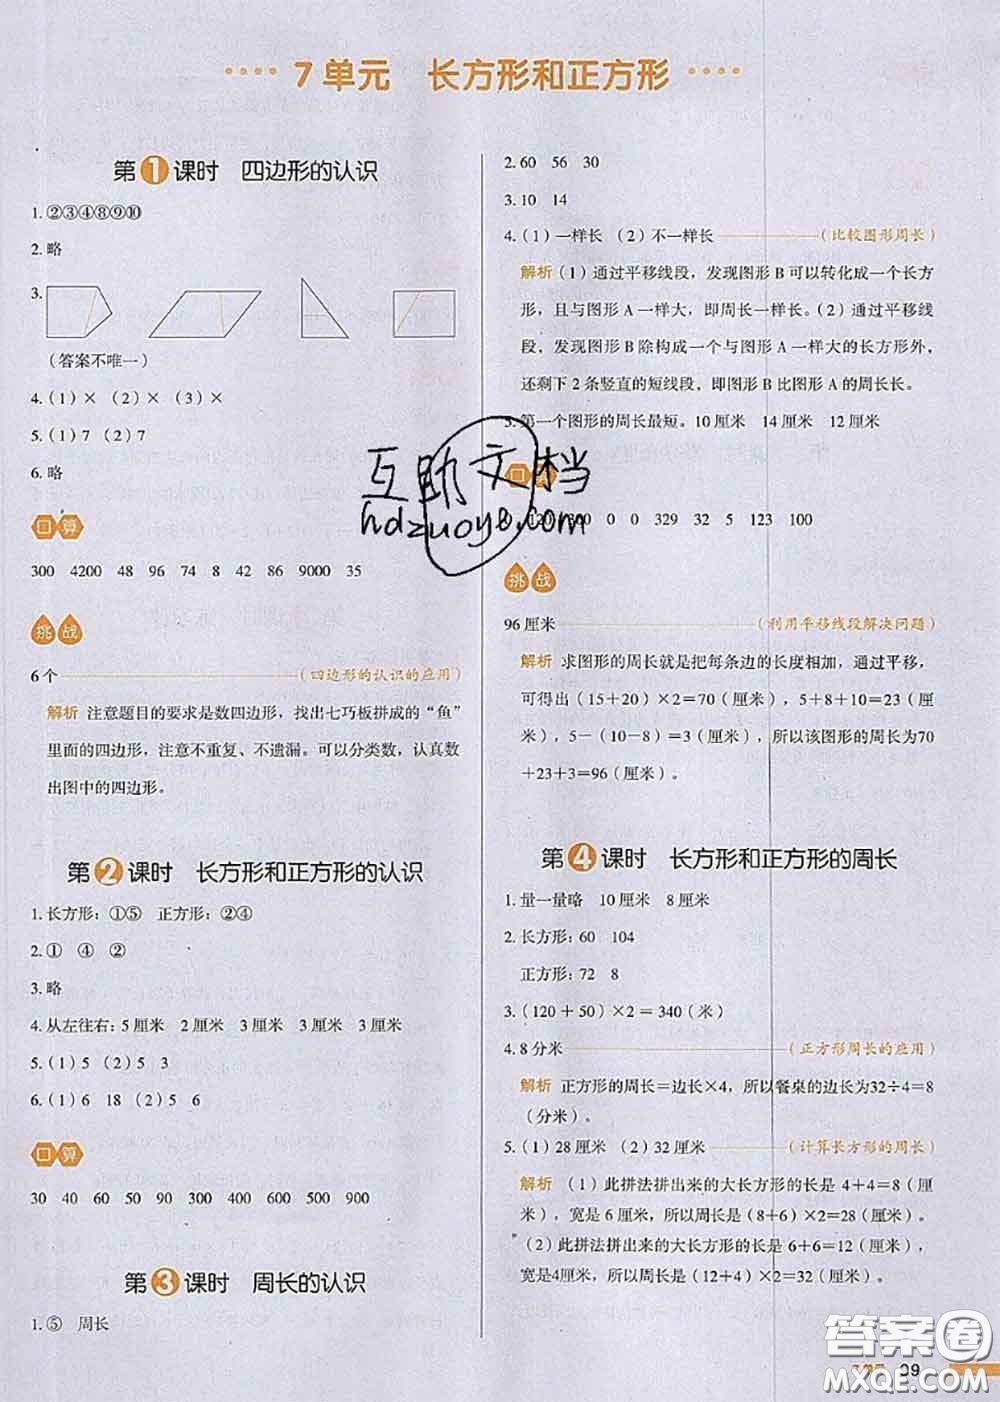 7单元 长方形和正方形
第1课时 四边形的认识
1.②③④⑧⑨⑩
2.略
3.
(答案不唯一)
4.(1)× (2)× (3)×
5.(1)7 (2)7
6.略
口算
300 4200 48 96 74 8 42 86 9000 35
挑战
6个(四边形的认识的应用)
解析 注意题目的要求是数四边形，找出七巧板拼成的“鱼”
里面的四边形，注意不重复、不遗漏。可以分类数，认真数
出图中的四边形。
第2课时 长方形和正方形的认识
1.长方形：①⑤ 正方形：②④
2.① ④ ②
3.略
4.从左往右：5厘米 2厘米 3厘米 3厘米 3厘米
5.(1)5 (2)5 3
6.(1)6 18 (2)5 6
口算
30 40 60 50 90 300 500 500 900
第3课时 周长的认识
1.⑤ 周长
2.60 56 30
3.10 14
4.(1)一样长 (2)不一样长(比较图形周长)
解析 (1)通过平移线段，发现图形B可以转化成一个长方
形，且与图形A一样大，即周长一样长。(2)通过平移线
段，发现图形B除构成一个与图形A一样大的长方形外，
还剩下2条竖直的短线段，即图形B比图形A的周长长。
5.第一个图形的周长最短。10厘米 14厘米 12厘米
口算
120 300 0 0 329 32 5 123 100
挑战
96厘米(利用平移线段解决问题)
解析 求图形的周长就是把每条边的长度相加，通过平移，
可得出(15+20)×2=70(厘米)，5+8+10=23(厘
米)，5-(10-8)=3(厘米)，所以该图形的周长为70
+23+3=96(厘米)。
第4课时 长方形和正方形的周长
1.量一量略 10厘米 8厘米
2.长方形：60 104
正方形：72 8
3.(120+50)×2=340(米)
4.8分米(正方形周长的应用)
解析 正方形的周长=边长×4，所以餐桌的边长为32÷4=8
(分米)。
5.(1)28厘米 (2)32厘米(计算长方形的周长)
解析 (1)此拼法拼出来的大长方形的长是4+4=8(厘
米)，宽是6厘米，所以周长是(8+6)×2=28(厘米)。
(2)此拼法拼出来的大长方形的长是6+6=12(厘米)，
宽是4厘米，所以周长是(12+4)×2=32(厘米)。
互助文档
hdzuoye.com
答案圈
MXQE.COM